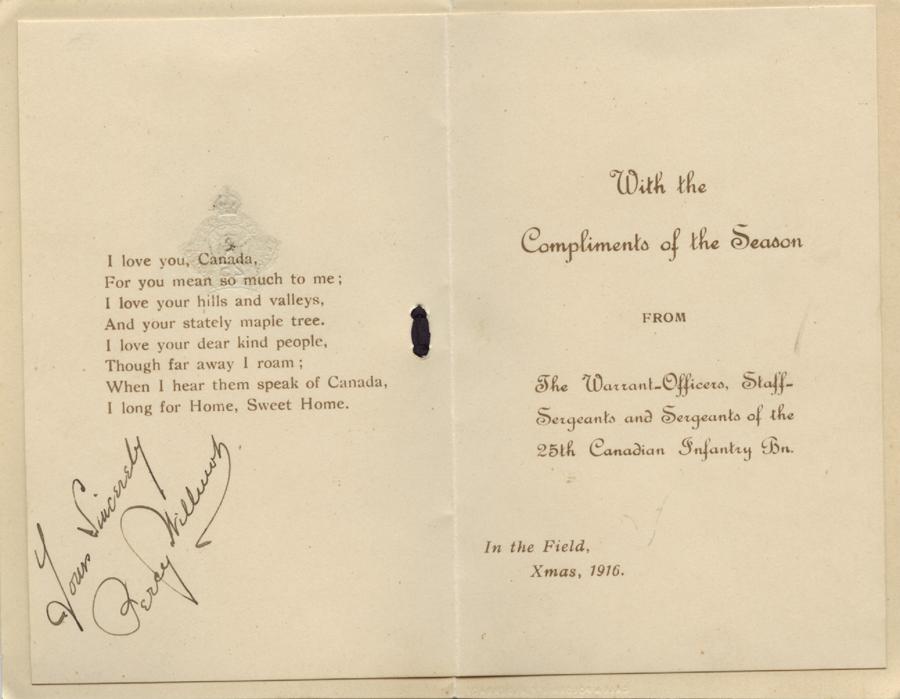 I love you, Canada,
For you mean so much to me;
I love your hills and valleys,
And your stately maple tree.
I love your dear kind people,
Though far away I roam;
When I hear them speak of Canada,
I long for Home, Sweet Home.
Yours Sincerely
Percy
With the
Compliments of the Season
FROM
The Warrant-Officers, Staff-
Sergeants and Sergeants of the
25th Canadian Infantry Bn.
In the Field,
Xmas, 1916.